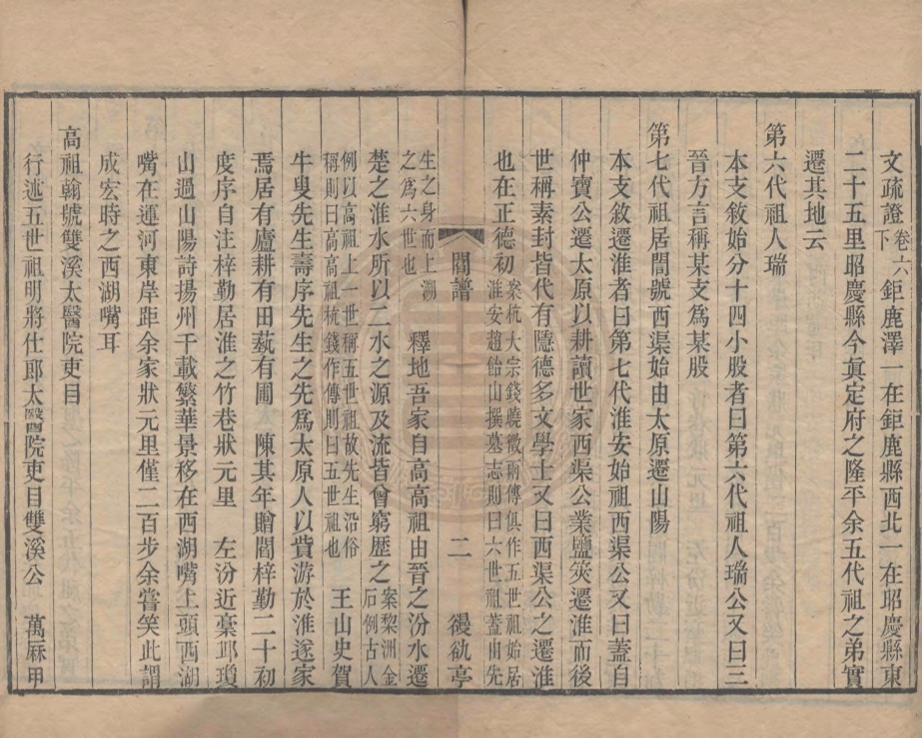 文疏證卷六下鉅鹿澤一在鉅鹿縣西北一在昭慶縣東
二十五里昭慶縣今眞定府之隆平余五代祖之弟實
遷其地云
第六代祖人瑞
本支敘始分十四小股者曰第六代祖人瑞公又曰三
晉方言稱某支爲某股
第七代祖居誾號西渠始由太原遷山陽
本支敘遷淮者曰第七代淮安始祖西渠公又曰蓋自
仲寶公遷太原以耕讀世家西渠公業鹽筴遷淮而後
世稱素封皆代有隱德多文學士又曰西渠公之遷淮
也在正德初案杭大宗錢曉徵兩傳俱作五世祖始居淮安趙飴山撰墓志則曰六世祖蓋由先
閻譜
二
㣪㰱亭
生之身而上溯之爲六世也釋地吾家自高高祖由晉之汾水遷
楚之淮水所以二水之源及流皆曾窮歷之案黎洲金石例古人
例以高祖上一世稱五世祖故先生沿俗稱則曰高高祖杭錢作傳則曰五世祖也王山史賀
牛叟先生壽序先生之先爲太原人以貲游於淮遂家
焉居有廬耕有田蓺有圃陳其年贈閻梓勤二十初
度序自注梓勤居淮之竹巷狀元里左汾近稾邛瓊
山過山陽詩揚州千載繁華景移在西湖嘴上頭西湖
嘴在運河東岸距余家狀元里僅二百步余嘗笑此謂
成宏時之西湖嘴耳
高祖翰號雙溪太醫院吏目
行述五世祖明將仕郎太醫院吏目雙溪公萬厤甲